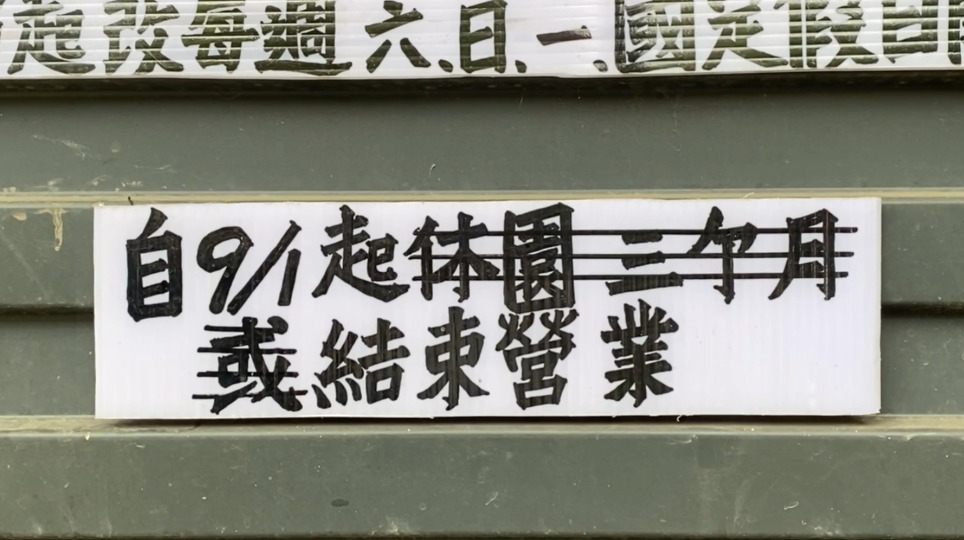 起改每週六、日、一、國定假日
自9/1起休園三个月
或結束營業